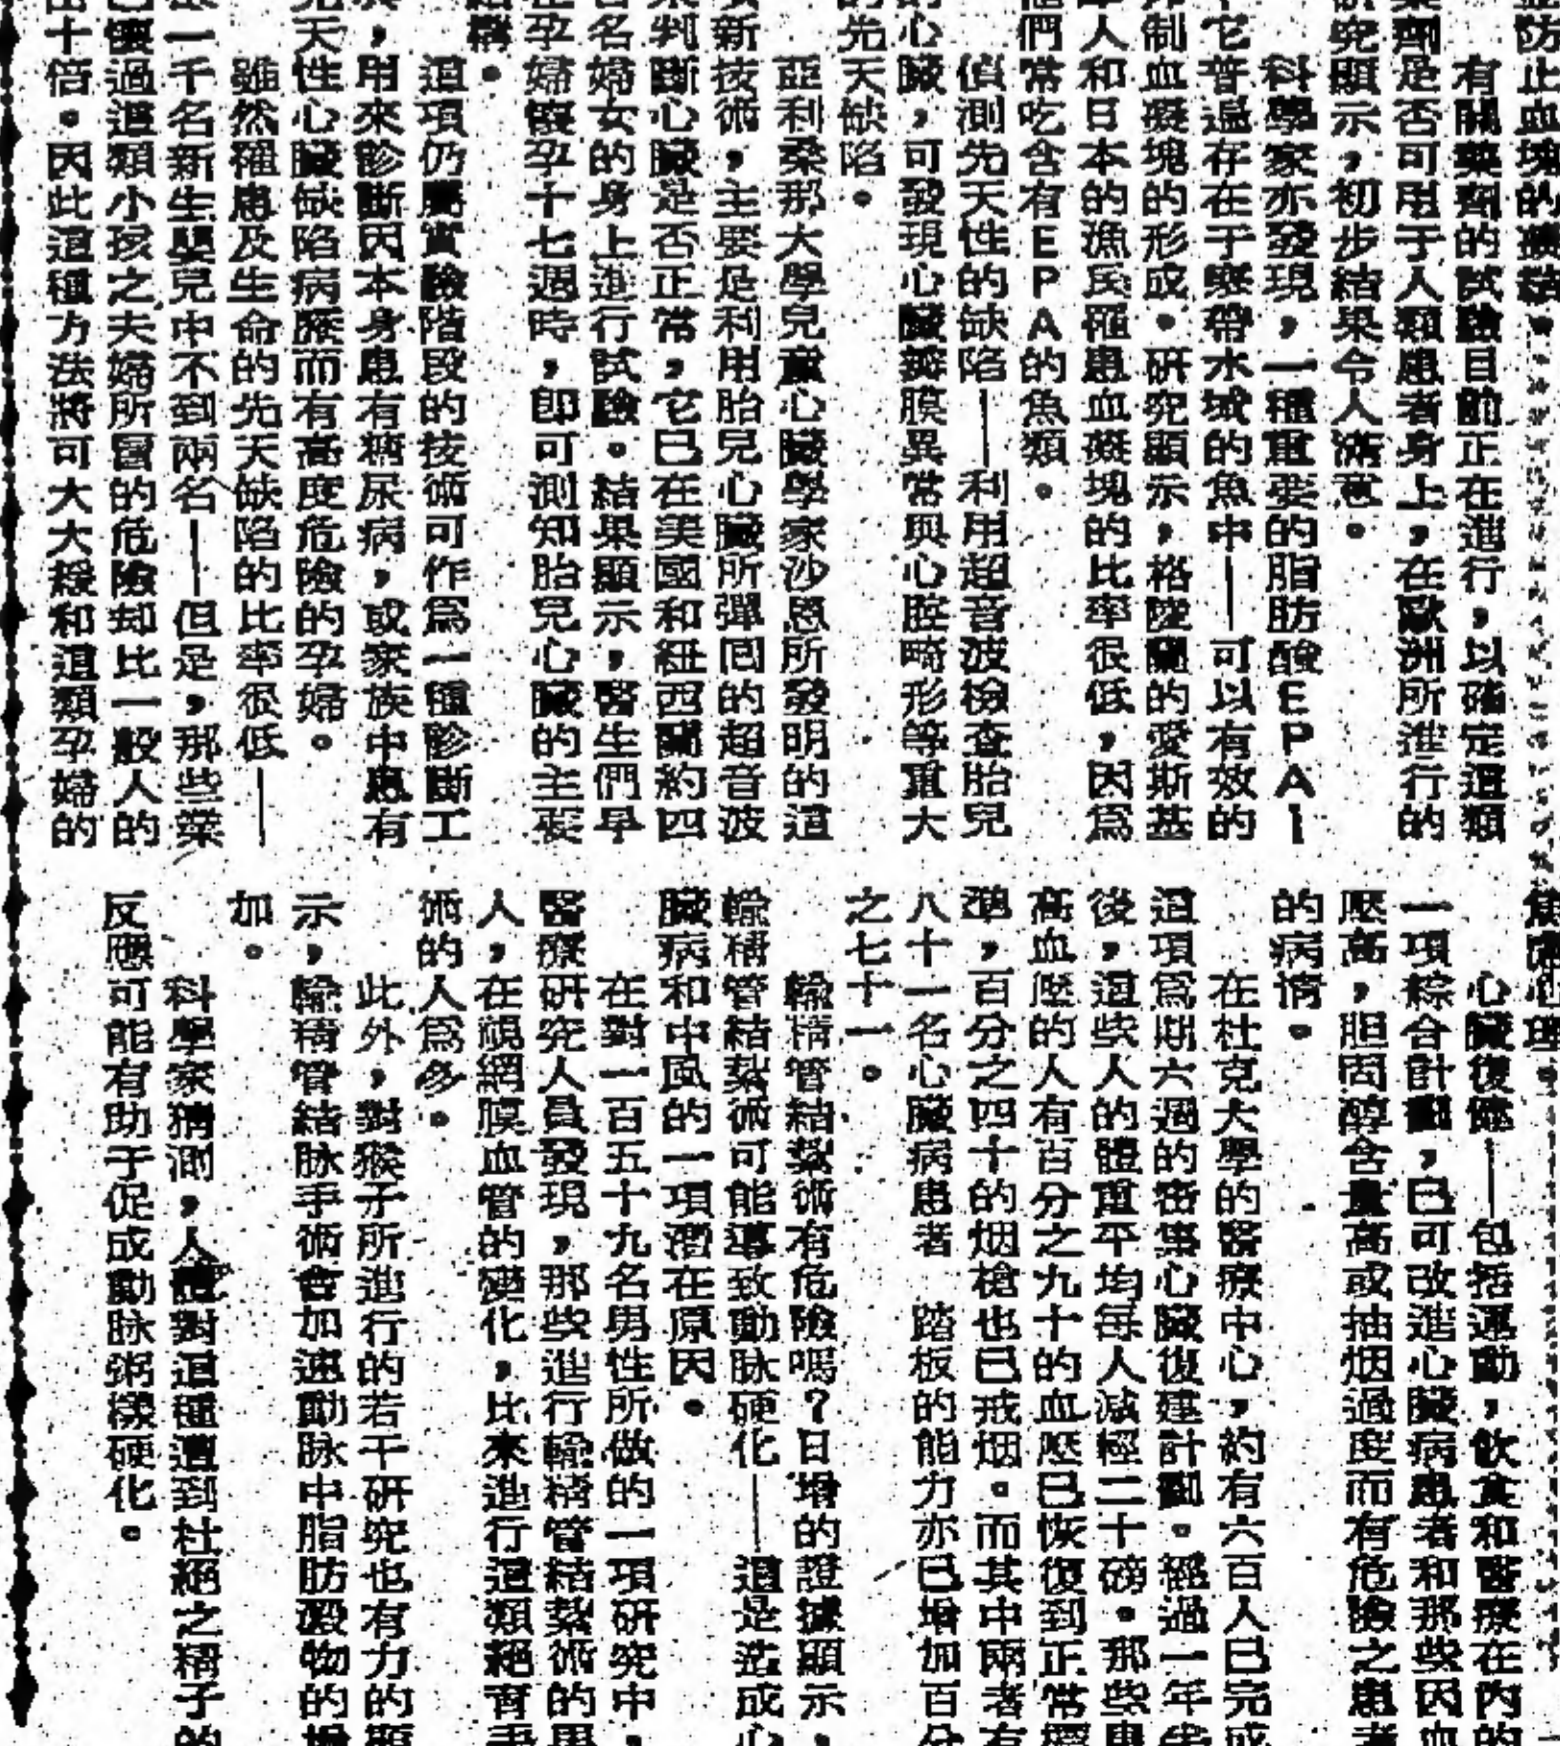 防止血塊的凝結。
有關藥劑的試驗目前正在進行，以確定這類
藥劑是否可用于人類患者身上，在歐洲所進行的
研究顯示，初步結果令人滿意。
科學家亦發現，一種重要的脂肪酸ＥＰＡ｜
它普遍存在于寒帶水域的魚中——可以有效的
制血凝塊的形成。研究顯示，格陵蘭的愛斯基
人和日本的漁民罹患血凝塊的比率很低，因爲
他們常吃含有ＥＰＡ的魚類。
偵測先天性的缺陷——利用超音波檢查胎兒
的心臟，可發現心臟瓣膜異常與心腔畸形等重大
的先天缺陷。
亞利桑那大學兒童心臟學家沙恩所發明的這
項新技術，主要是利用胎兒心臟所彈回的超音波
來判斷心臟是否正常，它已在美國和紐西蘭約四
百名婦女的身上進行試驗。結果顯示，醫生們早
在孕婦懷孕十七週時，即可測知胎兒心臟的主要
結構。
這項仍屬實驗階段的技術可作爲一種診斷工
具，用來診斷因本身患有糖尿病，或家族中患有
先天性心臟缺陷病歷而有高度危險的孕婦。
雖然罹患及生命的先天缺陷的比率很低——
一千名新生嬰兒中不到兩名——但是，那些業
已懷過這類小孩之夫婦所冒的危險却比一般人的
出十倍。因此這種方法將可大大緩和這類孕婦的
焦慮心理。
心臟復健——包括運動，飲食和醫療在內的
一項綜合計劃，已可改進心臟病患者和那些因血
壓高，胆固醇含量高或抽烟過度而有危險之患者
的病情。
在杜克大學的醫療中心，約有六百人已完成
這項爲期六週的密集心臟復建計劃。經過一年半
後，這些人的體重平均每人減輕二十磅。那些患
高血壓的人有百分之九十的血壓已恢復到正常標
準，百分之四十的烟槍也已戒烟。而其中兩者有
八十一名心臟病患者　踏板的能力亦已增加百分
之七十一。
輸精管結紮術有危險嗎？日增的證據顯示，
輸精管結紮術可能導致動脉硬化——這是造成心
臟病和中風的一項潛在原因。
在對一百五十九名男性所做的一項研究中，
醫療研究人員發現，那些進行輸精管結紮術的男
人，在視網膜血管的變化，比來進行這類絕育手
術的人爲多。
此外，對猴子所進行的若干研究也有力的顯
示，輸精管結脉手術會加速動脉中脂肪澱物的增
加。
科學家猜測，人體對這種遭到杜絕之精子的
反應可能有助于促成動脉粥樣硬化。